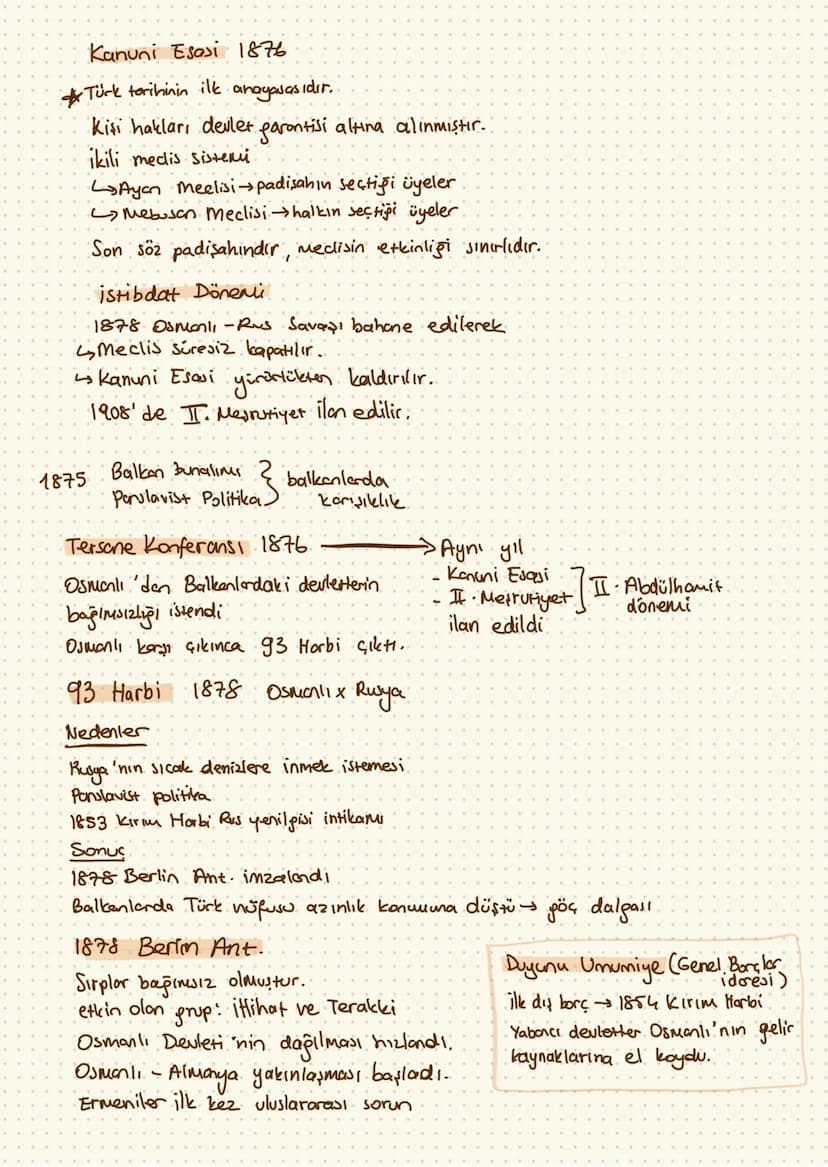 Kanuni Esasi 1876
☆ Türk tarihinin ilk anayasasıdır.
Kişi hakları devlet garantisi altına alınmıştır.
İkili meclis sistemi
↳ Ayan Meclisi → padişahın seçtiği üyeler
↳ Mebusan Meclisi → halkın seçtiği üyeler
Son söz padişahındır, meclisin etkinliği sınırlıdır.
İstibdat Dönemi
1878 Osmanlı - Rus Savaşı bahane edilerek
↳ Meclis süresiz kapatılır.
↳ Kanuni Esasi yürürlükten kaldırılır.
1908'de II. Meşrutiyet ilan edilir.
1875 Balkan bunalımı } balkanlarda
Panslavist Politika } karışıklık
Tersane Konferansı 1876 → Aynı yıl
- Kanuni Esasi
- II. Meşrutiyet
ilan edildi
] II. Abdülhamit
dönemi
Osmanlı'dan Balkanlardaki devletlerin
bağımsızlığı istendi
Osmanlı karşı çıkınca 93 Harbi çıktı.
93 Harbi 1878 Osmanlı x Rusya
Nedenler
Rusya'nın sıcak denizlere inmek istemesi
Panslavist politika
1853 Kırım Harbi Rus yenilgisi intikamı
Sonuç
1878 Berlin Ant. imzalandı
Balkanlarda Türk nüfusu azınlık konumuna düştü → göç dalgası
1878 Berlin Ant.
Sırplar bağımsız olmuştur.
etkin olan grup: İttihat ve Terakki
Osmanlı Devleti'nin dağılması hızlandı.
Osmanlı - Almanya yakınlaşması başladı.
Ermeniler ilk kez uluslararası sorun
Duyunu Umumiye (Genel Borçlar
idaresi)
İlk dış borç → 1854 Kırım Harbi
Yabancı devletler Osmanlı'nın gelir
kaynaklarına el koydu.